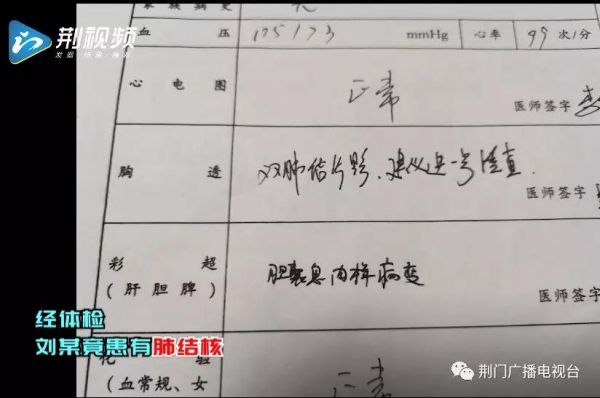 荆视频
发掘·传承·精彩
家族病史 无
血压 175/73 mmHg 心率 99 次/分
心电图 正常
医师签字
胸透 双肺结片影、建议进一步检查.
医师签字
彩超
(肝胆脾) 胆囊息肉样病变
医师签字
经体检
刘某竟患有肺结核
化验
(血常规、女 正常
荆门广播电视台